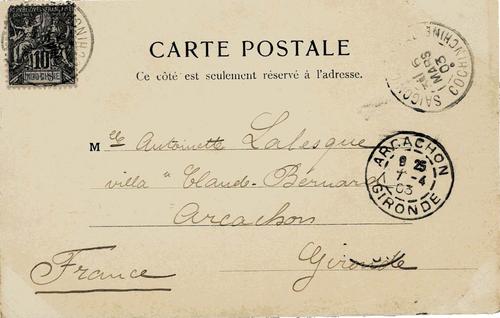 RÉPUBLIQUE FRANÇAISE
10
INDO-CHINE
CARTE POSTALE
Ce côté est seulement réservé à l'adresse.
SAIGON
MARS
03
COCHINCHINE
Mlle Antoinette Lalesque
villa "Claude-Bernard
ARCACHON
8 25
7 -4
03
GIRONDE
Arcachon
Gironde
France